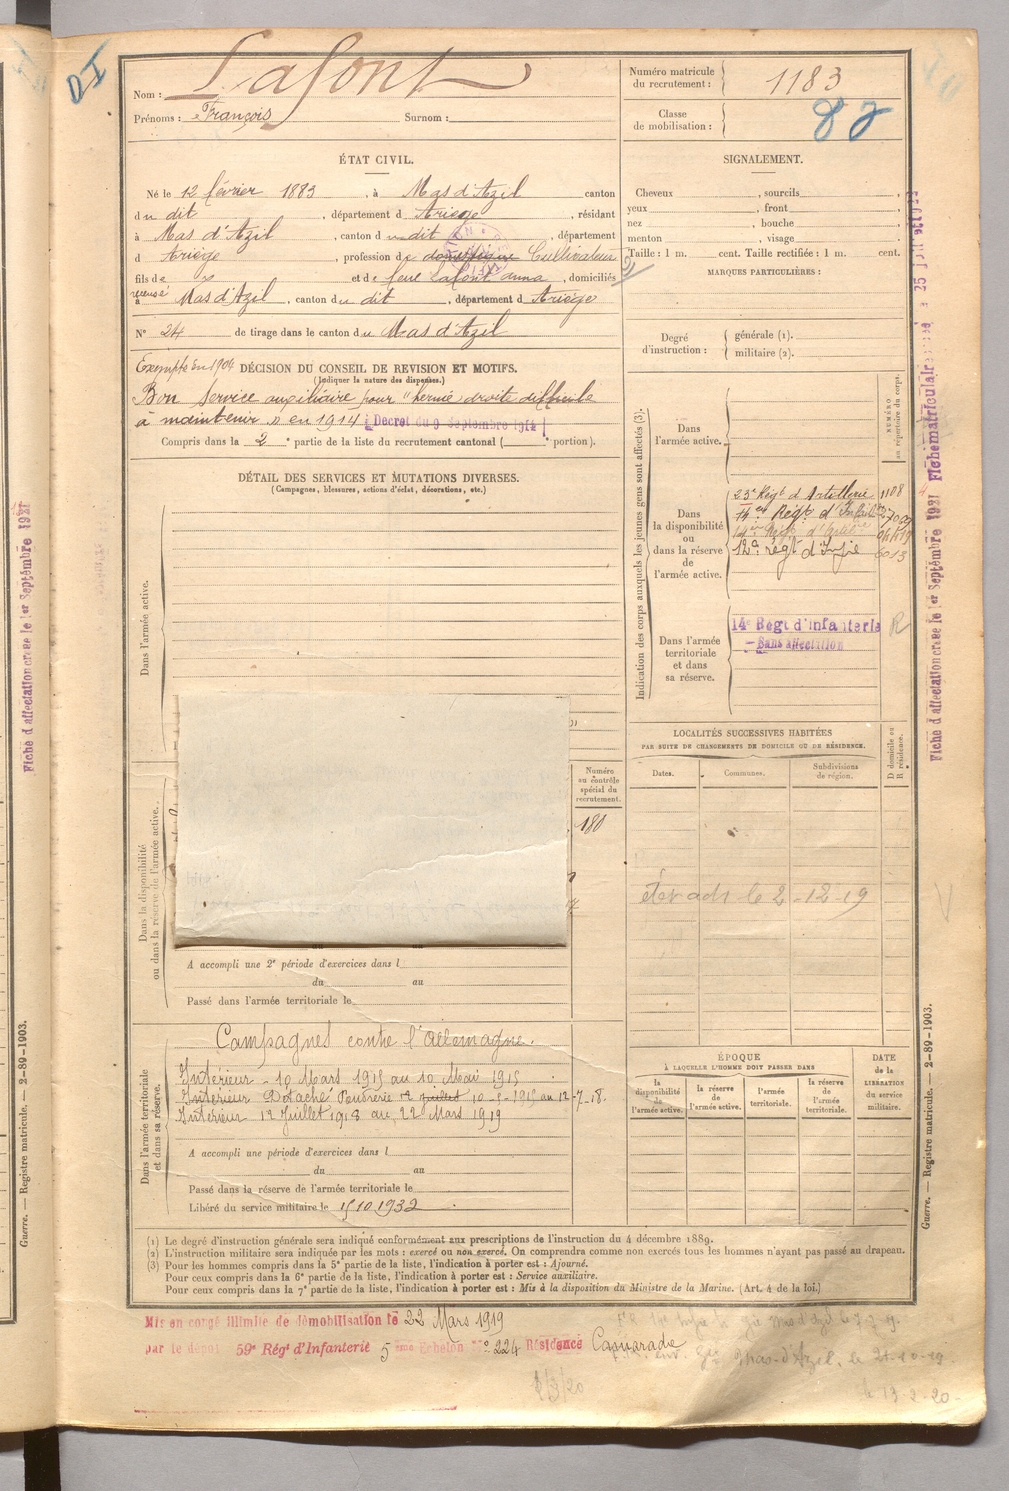 DI
Nom : Lafont
Prénoms : François Surnom :
Numéro matricule du recrutement : 1183
Classe de mobilisation : 87
ÉTAT CIVIL.
Né le 12 février 1883, à Mas d'Azil canton
du dit, département d Ariège, résidant
à Mas d'Azil, canton du dit, département
d Ariège, profession de domestique Cultivateur
fils de et de feue Lafont anna, domiciliés
recensé
à Mas d'Azil, canton du dit, département d Ariège
N° 24 de tirage dans le canton du Mas d'Azil
Exempté en 1904 DÉCISION DU CONSEIL DE REVISION ET MOTIFS.
(Indiquer la nature des dispenses.)
Bon Service auxiliaire pour "hernie droite difficile
à maintenir" en 1914 Décret du 9 Septembre 1914
Compris dans la 2e partie de la liste du recrutement cantonal ( portion).
DÉTAIL DES SERVICES ET MUTATIONS DIVERSES.
(Campagnes, blessures, actions d'éclat, décorations, etc.)
Dans l'armée active.
Dans la disponibilité
ou dans la réserve de l'armée active.
Numéro
au contrôle
spécial du
recrutement.
180
A accompli une 2e période d'exercices dans l
du au
Passé dans l'armée territoriale le
Dans l'armée territoriale
et dans sa réserve.
Campagnes contre l'Allemagne.
Intérieur - 10 Mars 1915 au 10 Mai 1915
Intérieur Détaché Poudrerie 12 juillet 10-5-1915 au 12-7-18.
Intérieur 12 Juillet 1918 au 22 Mars 1919
A accompli une période d'exercices dans l
du au
Passé dans la réserve de l'armée territoriale le
Libéré du service militaire le 15 10 1932
SIGNALEMENT.
Cheveux , sourcils ,
yeux , front ,
nez , bouche ,
menton , visage
Taille : 1 m. cent. Taille rectifiée : 1 m. cent.
MARQUES PARTICULIÈRES :
Degré
d'instruction :
générale (1).
militaire (2).
Indication des corps auxquels les jeunes gens sont affectés (3).
NUMÉRO
au répertoire du corps.
Dans
l'armée active.
Dans
la disponibilité
ou
dans la réserve
de
l'armée active.
23e Régt d'Artillerie 1108
14e Régt d'Infie
14e Régt d'Artie
12e régt d'Infie 6013
Dans l'armée
territoriale
et dans
sa réserve.
14e Régt d'infanterie R
Sans affectation
LOCALITÉS SUCCESSIVES HABITÉES
PAR SUITE DE CHANGEMENTS DE DOMICILE OU DE RÉSIDENCE.
Dates. Communes. Subdivisions
de région. D domicile ou
R résidence.
le 2-12-19
ÉPOQUE
À LAQUELLE L'HOMME DOIT PASSER DANS
la
disponibilité
de
l'armée active.
la réserve
de
l'armée active.
l'armée
territoriale.
la réserve
de l'armée
territoriale.
DATE
de la
LIBÉRATION
du service
militaire.
(1) Le degré d'instruction générale sera indiqué conformément aux prescriptions de l'instruction du 4 décembre 1889.
(2) L'instruction militaire sera indiquée par les mots : exercé ou non exercé. On comprendra comme non exercés tous les hommes n'ayant pas passé au drapeau.
(3) Pour les hommes compris dans la 5e partie de la liste, l'indication à porter est : Ajourné.
Pour ceux compris dans la 6e partie de la liste, l'indication à porter est : Service auxiliaire.
Pour ceux compris dans la 7e partie de la liste, l'indication à porter est : Mis à la disposition du Ministre de la Marine. (Art. 4 de la loi.)
Mis en congé illimité de démobilisation le 22 Mars 1919
par le dépôt 59e Régt d'Infanterie 5ème Echelon N° 224 Résidence Camarade
Mas-d'Azil, le
le 13-2-20-
Fiche d'affectation créée le 1er Septembre 1927
Fiche d'affectation créée le 1er Septembre 1927 Fiche matriculaire
Guerre. — Registre matricule. — 2-89-1903.
Guerre. — Registre matricule. — 2-89-1903.